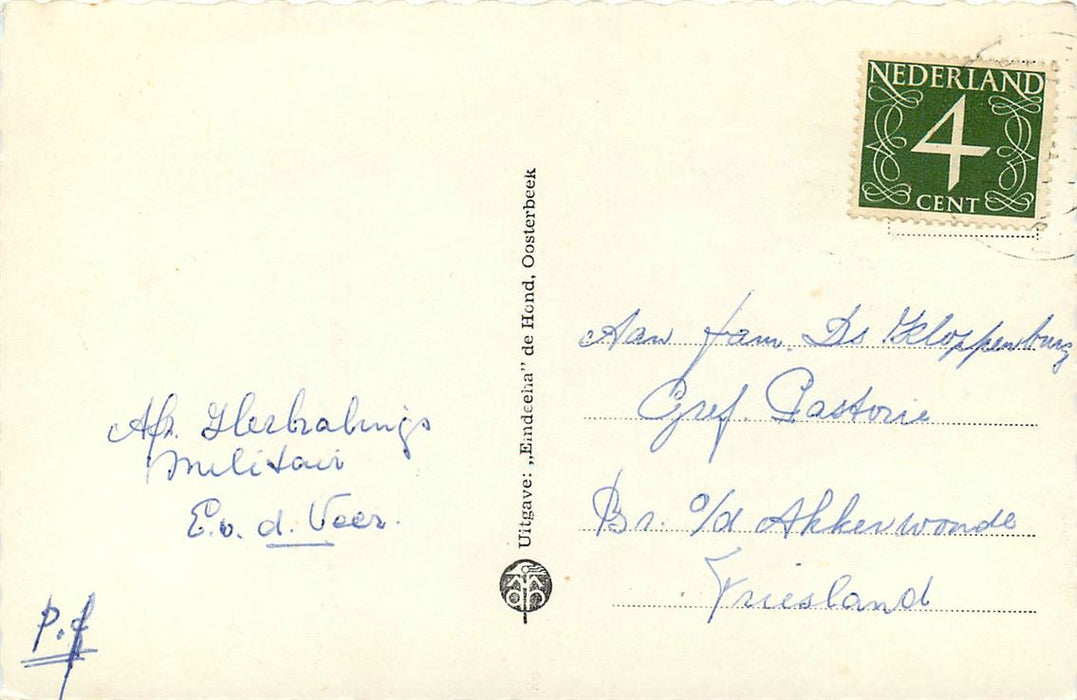 NEDERLAND
4
CENT
Uitgave: „Emdeeha" de Hond, Oosterbeek
Aan fam. Ds Kloppenburg
Gref. Pastorie
Br. o/d Akkerwoude
Friesland
Afz. Herhalings
Militair
E. v. d. Veer.
P.f